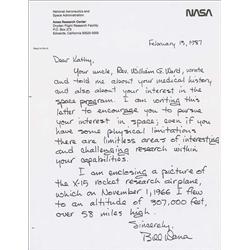 National Aeronautics and
Space Administration
Ames Research Center
Dryden Flight Research Facility
P.O. Box 273
Edwards, California 93523-5000
NASA
February 13, 1987
Dear Kathy,
Your uncle, Rev. William G. Ward, wrote
and told me about your medical history
and also about your interest in the
space program. I am writing this
letter to encourage you to pursue
your interest in space; even if you
have some physical limitations
there are limitless areas of interesting
and challenging research within
your capabilities.
I am enclosing a picture of
the X-15 rocket research airplane,
which on November 1, 1966 I flew
to an altitude of 307,000 feet,
over 58 miles high.
Sincerely,
Bill Dana